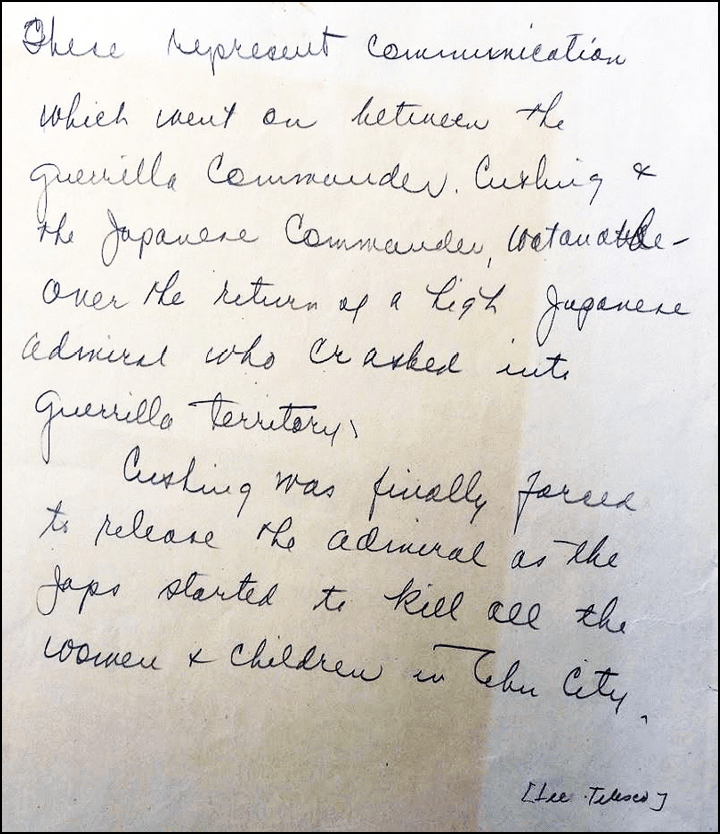 These represent communication
which went on between the
guerrilla Commander. Cushing &
the Japanese Commander, Watanabe -
over the return of a high Japanese
admiral who crashed into
Guerrilla Territory.
Cushing was finally forced
to release the admiral as the
Japs started to kill all the
women & children in Cebu City.
[Lee Telesco]